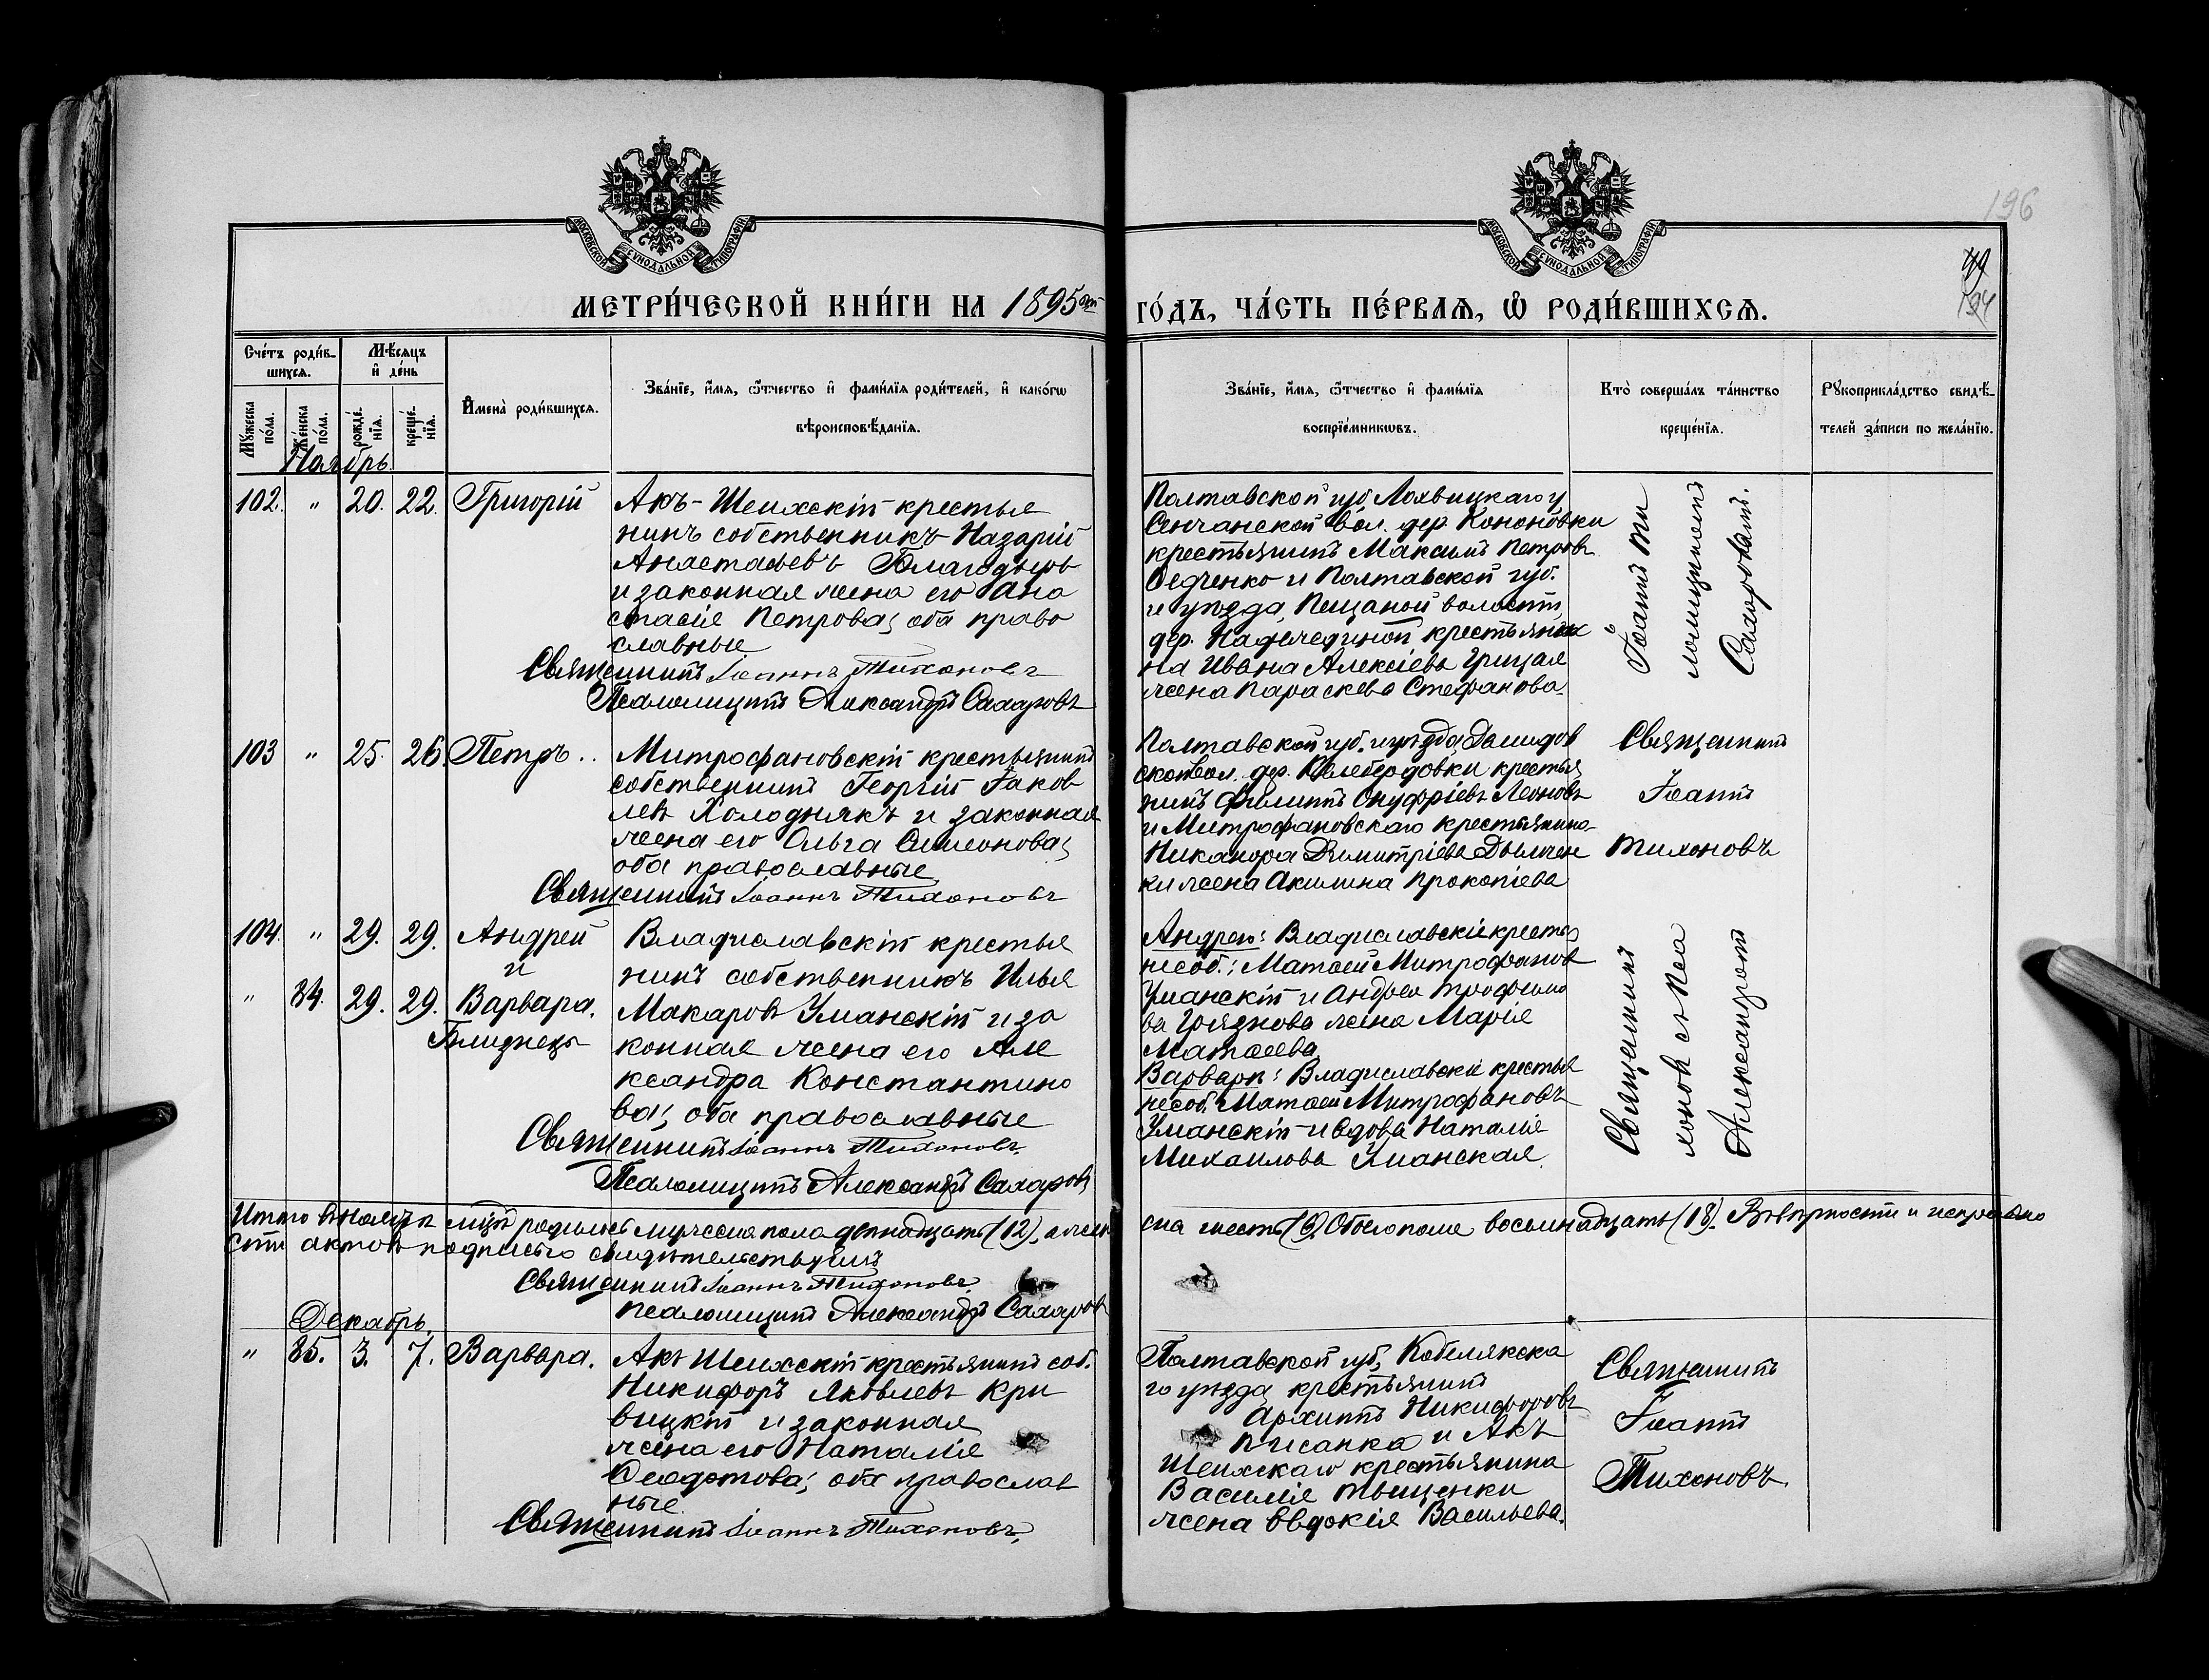 196
194
МОСКОВСКОЙ СѴНОДАЛЬНОЙ ТИПОГРАФІИ
МОСКОВСКОЙ СѴНОДАЛЬНОЙ ТИПОГРАФІИ
МЕТРИ́ЧЕСКОЙ КНИ́ГИ НА 1895 ой ГО́ДЪ, ЧА́СТЬ ПЕ́РВАѦ, Ѽ РОДИ́ВШИХСѦ.
Сче́тъ роди́в-
шихсѧ.
Мѣ́сѧцъ
и҆ де́нь
Мꙋ́жеска по́ла.
Же́нска по́ла.
рожде́-
нїѧ.
креще́-
нїѧ.
И҆мена̀ роди́вшихсѧ.
Зва́нїе, и҆́мѧ, ѻ҆́тчество и҆ фами́лїѧ роди́телей, и҆ како́гѡ
вѣроисповѣ́данїѧ.
Зва́нїе, и҆́мѧ, ѻ҆́тчество и҆ фами́лїѧ
воспрїе́мникѡвъ.
Кто̀ соверша́лъ та́инство
креще́нїѧ.
Рꙋкоприкла́дство свидѣ́-
телей за́писи по жела́нїю.
Ноябрь.
102. " 20. 22. Григорій
Акъ-Шеихскій крестья
нинъ собственникъ Назарій
Анастасьевъ
и законная жена его Ана
стасія Петрова; оба право
славные
Священникъ Іоаннъ Тихоновъ
Псаломщикъ Александръ Сахаровъ
Полтавской губ. Лохвицкаго у
Сенчанской вол. дер. Кононовки
крестьянинъ Максимъ Петровъ
Федченко и Полтавской губ.
и уѣзда, Пещаной волости,
дер. крестьяни
на Ивана Алексіева Грицая
жена Параскева Стефанова.
Іоаннъ Ти
ломщикомъ
Сахаровымъ.
103 " 25. 26. Петръ..
Митрофановскій крестьянинъ
собственникъ Георгій Іаков
левъ Холоднякъ и законная
жена его Ольга Симеонова;
оба православные
Священникъ Іоаннъ Тихоновъ
Полтавской губ. и уѣзда, Демидов
ской вол. дер. Келебердовки крестья
нинъ Филиппъ Онуфріевъ Леоновъ
и Митрофановскаго крестьянина
Никанора Димитріева
ки жена Акилина Прокопіева
Священникъ
Іоаннъ
Тихоновъ
104. " 29. 29. Андрей
и
" 84. 29. 29. Варвара.
Близнецы
Владиславскій крестья
нинъ собственникъ Илья
Макаровъ Уманскій и за
конная жена его Але
ксандра Константино
ва; оба православные
Священникъ Іоаннъ Тихоновъ.
Псаломщикъ Александръ Сахаровъ
Андрею: Владиславскіе крестья
не соб.: Матѳей Митрофановъ
Уманскій и Андрея Трофимо
ва Грязнова жена Марія
Матѳеева
Варварѣ: Владиславскіе крестья
не соб. Матѳей Митрофановъ
Уманскій и вдова Наталія
Михаилова Уманская.
Священникъ
хонов съ Пса
Александромъ
Итого въ ноябрѣ м-цѣ родилось мужеска пола двѣнадцать (12), а жен
ска шесть (6) Обоего пола восьмнадцать (18). Въ вѣрности и исправно
сти актовъ подписью свидѣтельствуемъ
Священникъ Іоаннъ Тихоновъ.
Псаломщикъ Александръ Сахаровъ
Декабрь.
" 85. 3. 7. Варвара.
Акъ Шеихскій крестьянинъ соб.
Никифоръ Яковлевъ Кри
вицкій и законная
жена его Наталія
Ѳеодотова; оба православ
ные
Священникъ Іоаннъ Тихоновъ.
Полтавской губ, Кобелякска
го уѣзда крестьянинъ
Архиппъ Никифоровъ
Писанка и Акъ
Шеихскаго крестьянина
Василія Тыщенки
жена Евдокія Васильева.
Священникъ
Іоаннъ
Тихоновъ.